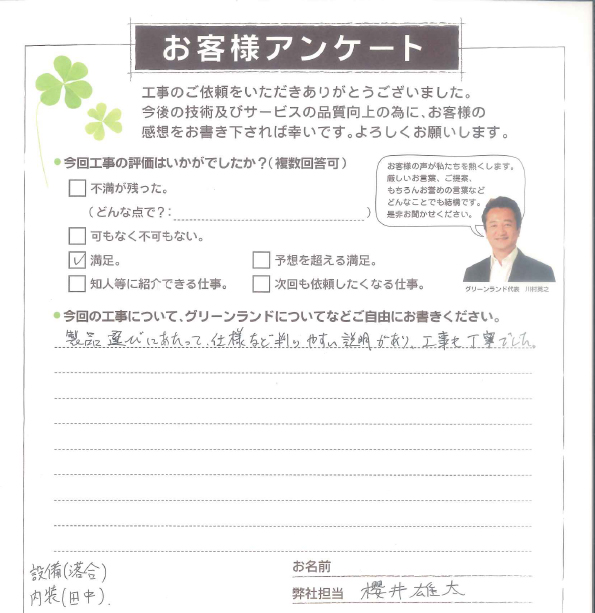 お客様アンケート
工事のご依頼をいただきありがとうございました。
今後の技術及びサービスの品質向上の為に、お客様の
感想をお書き下されば幸いです。よろしくお願いします。
●今回工事の評価はいかがでしたか？（複数回答可）
不満が残った。
（どんな点で？：　）
可もなく不可もない。
満足。
予想を超える満足。
知人等に紹介できる仕事。
次回も依頼したくなる仕事。
お客様の声が私たちを熱くします。
厳しいお言葉、ご提案、
もちろんお誉めの言葉など
どんなことでも結構です。
是非お聞かせください。
グリーンランド代表　川村寛之
●今回の工事について、グリーンランドについてなどご自由にお書きください。
製品選びにあたって、仕様など判りやすい説明があり、工事も丁寧でした。
設備(落合)
内装(田中).
お名前
弊社担当　櫻井雄太